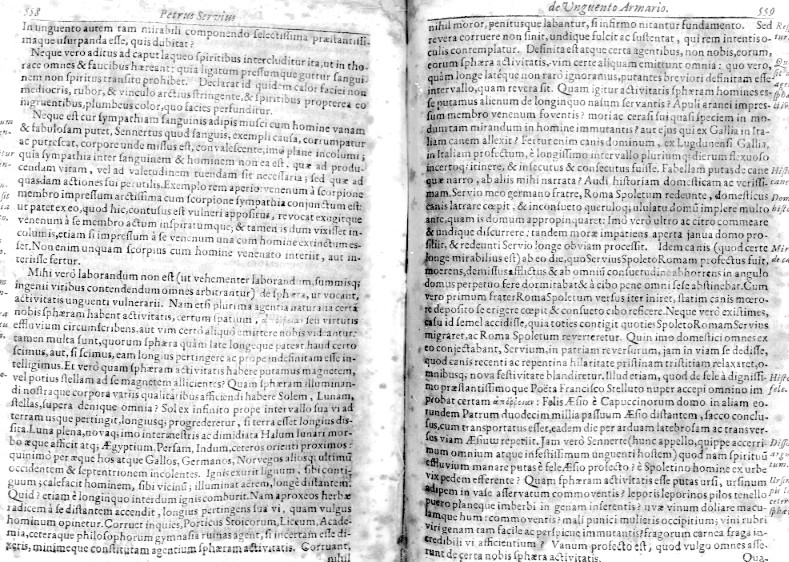 558 Petrus Servius
In unguento autem tam mirabili componendo selectissima præstantissi-
maque usurpanda esse, quis dubitat?
Neque vero aditus ad caput laqueo spiritibus intercluditur ita, ut in tho-
race omnes & faucibus hæreant: quia ligatum pressumque guttur sangui-
nem non spiritus transire prohibet. Declarat id quidem calor faciei non
mediocris, rubor, & vinculo arctius stringente, & spiritibus propterea eo
ingruentibus, plumbeus color, quo facies perfunditur.
Neque est cur sympathiam sanguinis adipis musci cum homine vanam
& fabulosam putet, Sennertus quod sanguis, exempli causa, corrumpatur
ac putrescat, corpore unde missus est, convalescente, imò plane incolumi;
quia sympathia inter sanguinem & hominem non ea est, quæ ad produ-
cendam vitam, vel ad valetudinem tuendam sit necessaria; sed quæ ad
quasdam actiones sui perutilis. Exemplo rem aperio: venenum à scorpione
membro impressum arctissima cum scorpione sympathia conjunctum est:
ut patet ex eo, quod hic, contusus est vulneri appositus, revocat exigitque
venenum à se membro actum inspiratumque; & tamen is dum vixisset in-
columis, etiam si impressum à se venenum una cum homine extinctum es-
set. Non enim unquam scorpius cum homine venenato interiit, aut in-
teriisse fertur.
Mihi verò laborandum non est (ut vehementer laborandum, summisq;
ingenii viribus contendendum omnes arbitrantur) de sphæra, ut vocant,
activitatis unguenti vulnerarii. Nam etsi plurima agentia naturalia certa
nobis sphæram habent activitatis, certum spatium, seu virtutis
effluvium circumscribens, aut vim certo aliquo emittere nobis vidantur:
tamen multa sunt, quorum sphæra quàm late longeque pateat haud certo
scimus, aut, si scimus, eam longius pertingere ac prope indefinitam esse in-
telligimus. Et verò quam sphæram activitatis habere putamus magnetem,
vel potius stellam ad se magnetem allicientes? Quam sphæram illuminan-
di nostraque corpora variis qualitatibus afficiendi habere Solem, Lunam,
stellas, supera denique omnia? Sol ex infinito prope intervallo sua vi ad
terram usque pertingit, longiusq; progrederetur, si terra esset longius dis-
sita. Luna plena, novaq; imo interanestris ac dimidiata Halum lunari mor-
bo æque afficit atq; Ægyptium, Persam, Indum, ceteros orienti proximos?
quinimò per æque hos atque Gallos, Germanos, Norvegios aliosq; ultimū
occidentem & septentrionem incolentes. Ignis exurit lignum, sibi conti-
guum; calefacit hominem, sibi vicinū; illuminat aërem, longe distantem.
Quid? etiam è longinquo interdum ignis comburit. Nam aproxeos herbæ
radicem à se distantem accendit, longius pertingens sua vi, quam vulgus
hominum opinetur. Corruet inquies, Porticus Stoicorum, Liceum, Acade-
mia, ceteraque philosophorum gymnasia ruinas agent, si incertam esse di-
xeris, minimeque constitutam agentium sphæram activitatis. Corruant,
nihil
de Unguento Armario. 559
nihil moror, penitusque labantur, si infirmo nitantur fundamento. Sed
revera corruere non sinit, undique fulcit ac sustentat, qui rem intentis o-
culis contemplatur. Definita est atque certa agentibus, non nobis, eorum,
eorum sphæra activitatis, vim certe aliquam emittunt omnia: quo vero,
quàm longe latéque non rarò ignoramus, putantes breviori definitam esse
intervallo, quam revera sit. Quam igitur activitatis sphæram homines es-
se putamus alienum de longinquo nasum servantis? Apuli aranei impres-
sum membro venenum foventis? mori ac cerasi sui quasi speciem in mo-
dum tam mirandum in homine immutantis? aut ejus qui ex Gallia in Ita-
liam canem allexit? Fertur enim canis dominum, ex Lugdunensi Gallia,
in Italiam profectum, è longissimo intervallo plurium q; dierum flexuoso
incertoq; itinere, & insecutus & consecutus fuisse. Fabellam putas de cane
quæ narro, ab aliis mihi narrata? Audi historiam domesticam ac verissi-
mam. Servio meo germano fratre, Roma Spoletum redeunte, domesticus
canis latrare cœpit, & inconsueto querulōq; ululatu domū implere multo
ante, quam is domum appropinquaret: Imò vero ultro ac citro commeare
& undique discurrere: tandem moræ impatiens aperta janua domo pro-
siliit, & redeunti Servio longe obviam processit. Idem canis (quod certe
longe mirabilius est) ab eo die, quo Servius Spoleto Romam profectus fuit,
mœrens, demissus afflictus & ab omniū consuetudine abhorrens in angulo
domus perpetuo fere dormitabat & à cibo pene omni sese abstinebat. Cum
vero primum frater Roma Spoletum versus iter iniret, statim canis mœro-
re deposito se erigere cœpit & consueto cibo reficere. Neque verò existimes,
casu id semel accidisse, quia toties contigit quoties Spoleto Romam Servius
migraret, ac Roma Spoletum reverteretur. Quin imo domestici omnes ex
eo conjectabant, Servium, in patriam reversurum, jam in viam se dedisse,
quod canis recenti ac repentina hilaritate pristinam tristitiam relaxaret, o-
mnibusq; nova festivitate blandiretur. Illud etiam, quod de fele à dignissi-
mo præstantissimoque Poëta Francisco Stelluto nuper accepi omnino im-
probat certam Felis Æsio è Capuccinorum domo in aliam eo-
rundem Patrum duodecim millia passuum Æsio distantem, sacco conclu-
sus, cum transportatus esset, eadem die per arduam latebrosam ac transver-
sus viam Æsiū repetiit. Jam verò Sennerte (hunc appello, quippe acerri-
mum omnium atque infestissimum unguenti hostem) quod nam spirituū
effluvium manare putas è fele Æsio profecto? è Spoletino homine ex urbe
vix pedem efferente? Quam sphæram activitatis esse putas ursi, ursinum
adipem in vase asservatum commoventis? leporis leporinos pilos tenello
puero planeque imberbi in genam inserentis? uvæ vinum doliare macu-
lamque humi commoventis? mali punici mulieris occipitium; vini rubri
viri genam tam facile ac perspicue immutantis? fragorum carnea fraga in-
credibili vi afficientium? Vanum profecto est, quod vulgo omnes asse-
runt de certa nobis sphæra activitatis.
Qua-